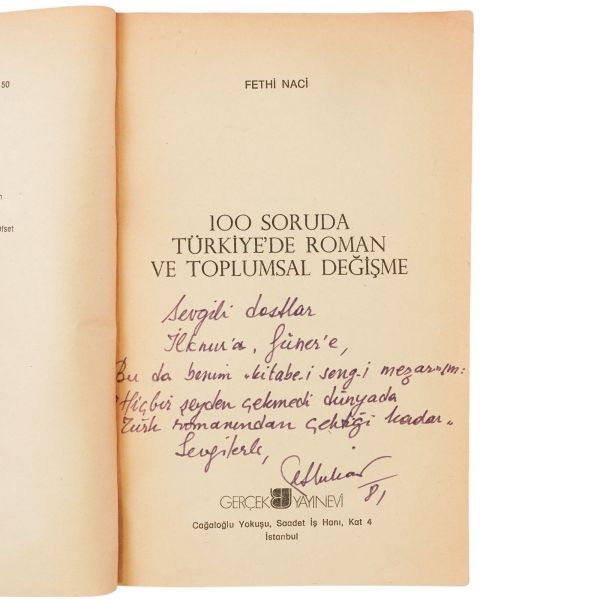 50
FETHİ NACİ
fset
100 SORUDA
TÜRKİYE'DE ROMAN
VE TOPLUMSAL DEĞİŞME
Sevgili dostlar
İlknur'a, Güner'e,
Bu da benim "kitabe-i seng-i mezar"ım:
"Hiçbir şeyden çekmedi dünyada
Türk romanından çektiği kadar."
Sevgilerle,
81
GERÇEK YAYINEVİ
Cağaloğlu Yokuşu, Saadet İş Hanı, Kat 4
İstanbul